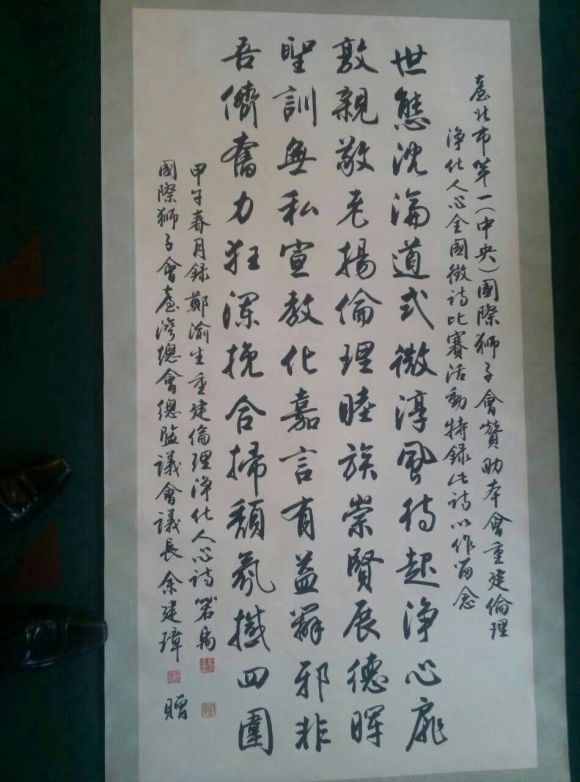 臺北市第一(中央)國際獅子會贊助本會重建倫理
淨化人心全國徵詩比賽活動特錄此詩以作留念
世態沈淪道式微淳風待起淨心扉
敦親敬老揚倫理睦族崇賢展德暉
聖訓無私宣教化嘉言有益邪非
吾儕奮力狂瀾挽合掃頹氛撼四圍
甲午春月錄鄭渝生重建倫理淨化人心詩
國際獅子會臺灣總會總監議會議長余建璋贈